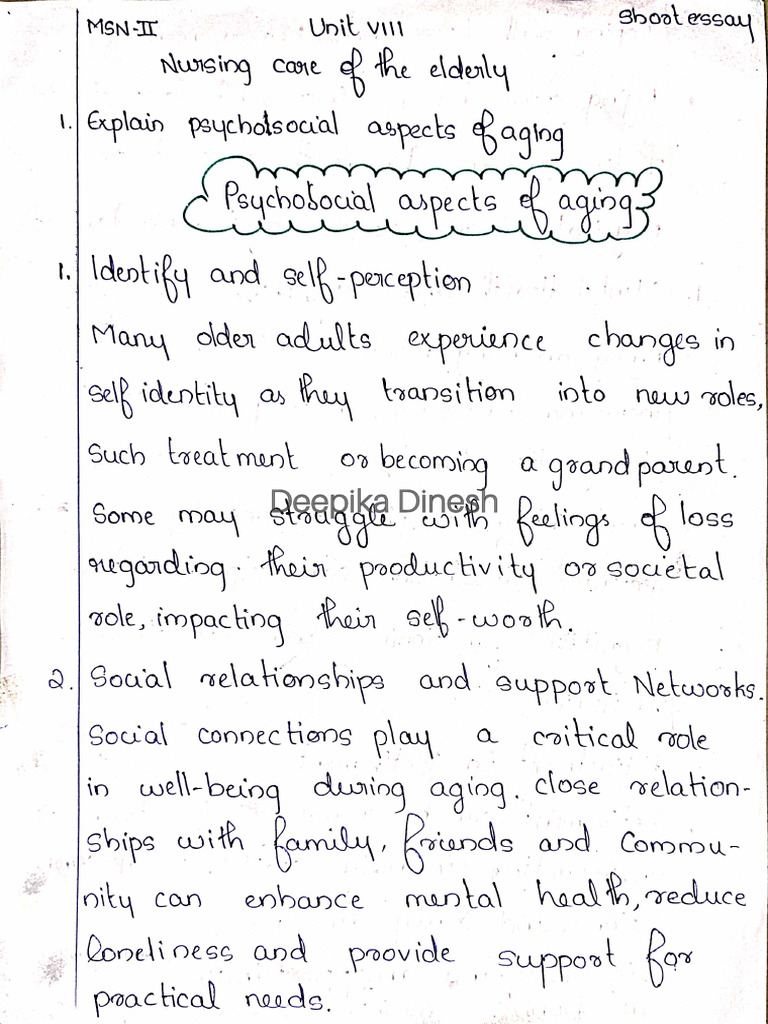 MSN-II Unit VIII Short essay
Nursing care of the elderly
1. Explain psychosocial aspects of aging
Psychosocial aspects of aging
1. Identify and self-perception
Many older adults experience changes in
self identity as they transition into new roles,
Such treatment or becoming a grand parent.
Deepika Dinesh
Some may struggle with feelings of loss
regarding. their productivity or societal
role, impacting their self-worth.
2. Social relationships and support Networks.
Social connections play a critical role
in well-being during aging. close relation-
ships with family, friends and commu-
nity can enhance mental health, reduce
loneliness and provide support for
practical needs.